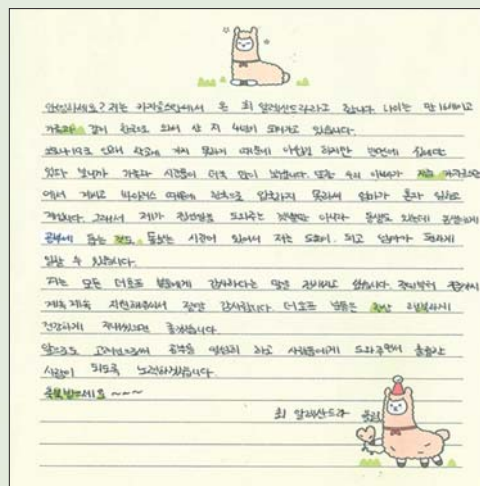 안녕하세요? 저는 카자흐스탄에서 온 최 알렉산드라라고 합니다. 나이는 만 16세이고
가족과 같이 한국으로 와서 산 지 4년이 되어가고 있습니다.
코로나19로 인해 학교에 가지 못하기 때문에 아쉽긴 하지만 반면에 집에만
있다 보니까 가족과 시간들이 더욱 많이 보냅니다. 또한 우리 아빠가 지금 카자흐스탄
에서 계시고 바이러스 때문에 한국으로 입국하지 못하셔 엄마가 혼자 일하고
계십니다. 그래서 제가 집안일을 도와주는 것뿐만 아니라 동생도 있는데 동생에게
공부에 돕는 것도 돌보는 시간이 있어서 저는 도움이 되고 엄마가 편하게
일할 수 있습니다.
저는 모든 더호프 분들에게 감사하다는 말을 전해드리고 싶습니다. 처음부터
계속계속 지원해주셔서 정말 감사합니다. 더호프 분들은 항상 행복하시
건강하게 지내셨으면 좋겠습니다.
앞으로도 고려인으로써 공부를 열심히 하고 사람들에게 도와주면서 훌륭한
사람이 되도록 노력하겠습니다.
축복받으세요 ~~~
최 알렉산드라 올림